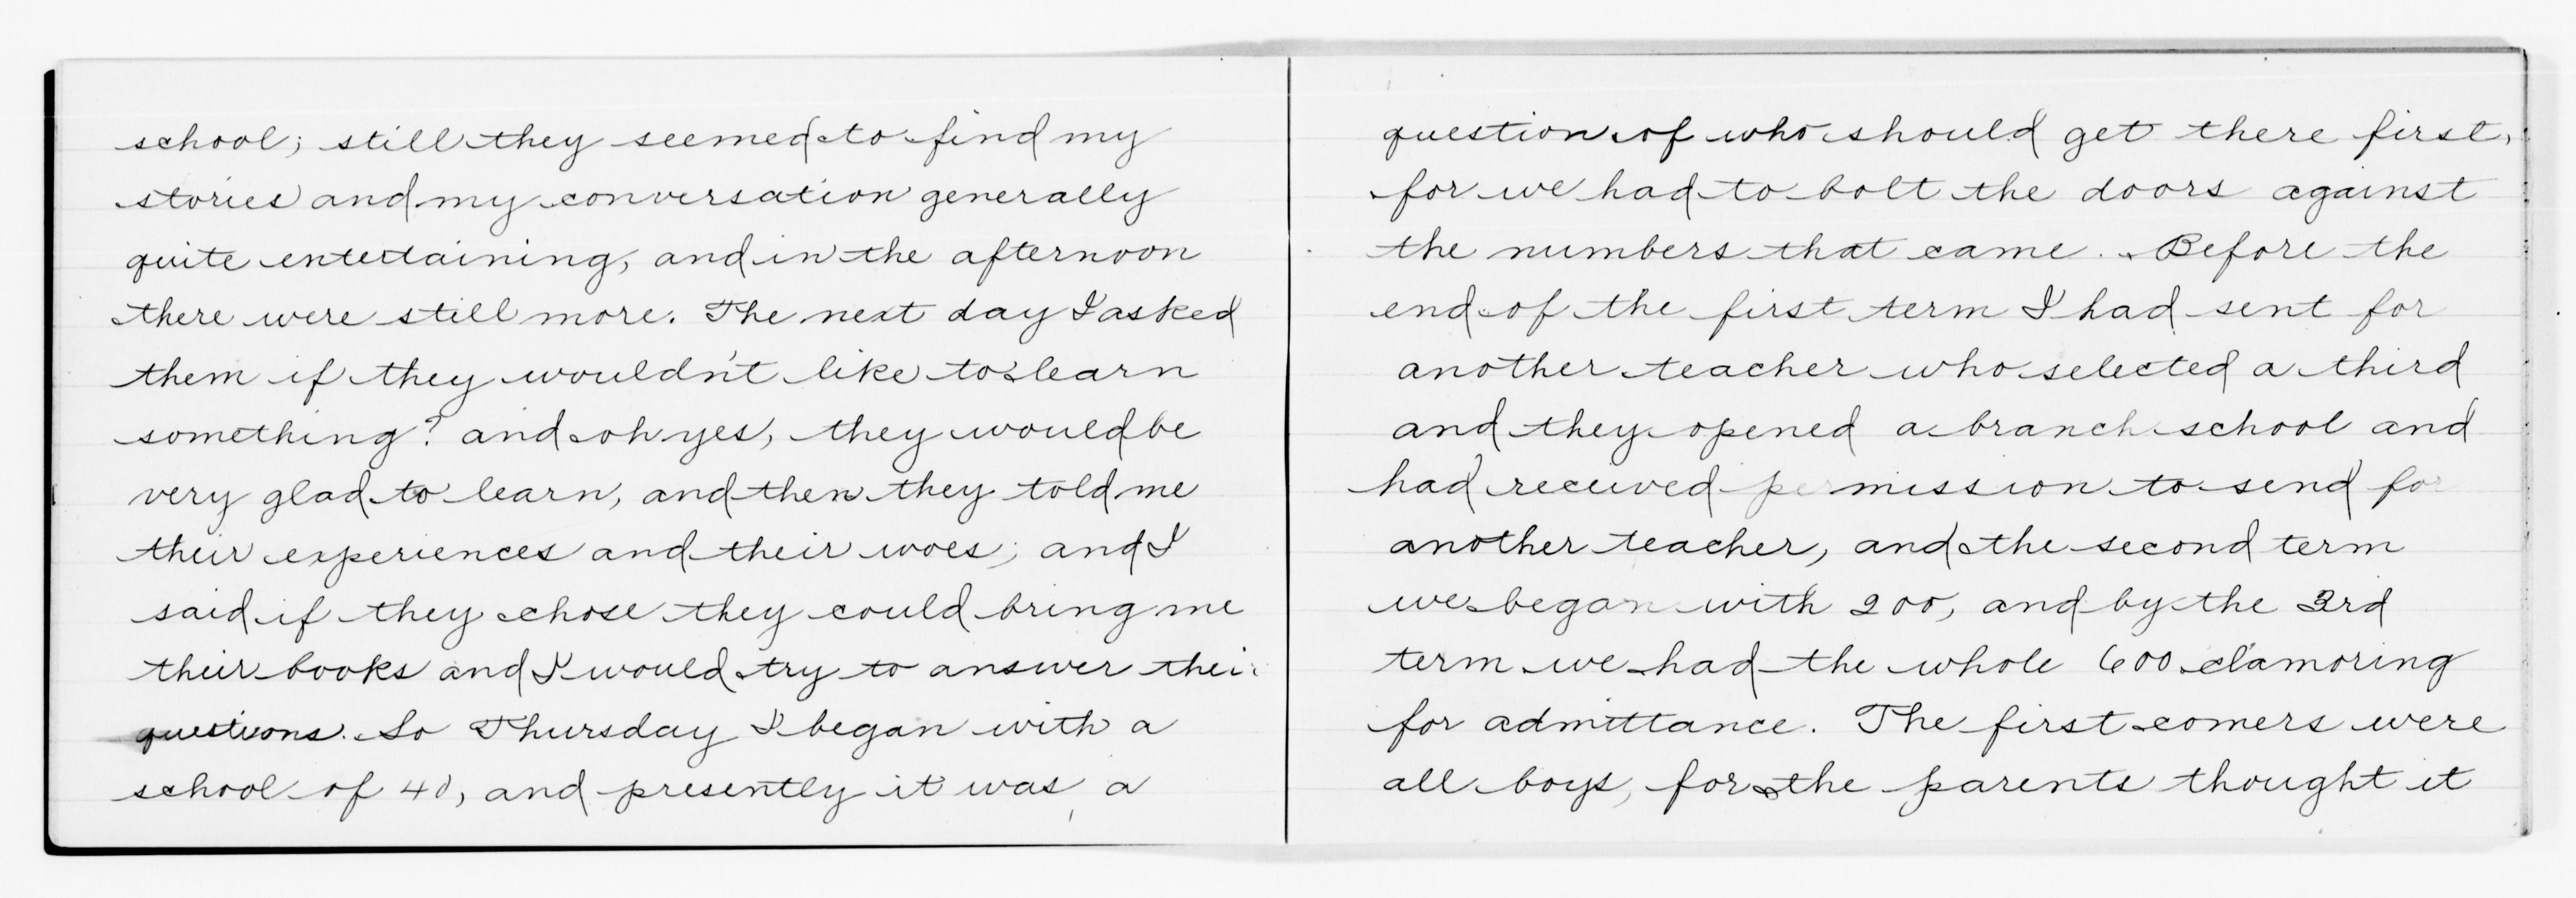 school; still they seemed to find my
stories and my conversation generally
quite entertaining, and in the afternoon
there were still more. The next day I asked
them if they wouldn't like to learn
something? and oh yes, they would be
very glad to learn, and then they told me
their experiences and their woes; and I
said if they chose they could bring me
their books and I would try to answer their
questions. So Thursday I began with a
school of 40, and presently it was a
question of who should get there first,
for we had to bolt the doors against
the numbers that came. Before the
end of the first term I had sent for
another teacher who selected a third
and they opened a branch school and
had received permission to send for
another teacher, and the second term
we began with 200, and by the 3rd
term we had the whole 600 clamoring
for admittance. The first comers were
all boys, for the parents thought it